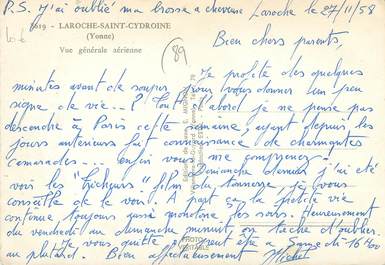 P.S. J'ai oublié ma brosse à cheveux Laroche le 27/11/58
7619 - LAROCHE-SAINT-CYDROINE
(Yonne)
Vue générale aérienne
(89)
Bien chers parents,
Je profite des quelques
minutes avant de souper pour vous donner un peu
signe de vie..? Tout d'abord je ne pense pas
descendre à Paris cette semaine, ayant depuis les
jours antérieurs fait connaissance de charmantes
camarades... enfin vous me comprenez.
Dimanche dernier j'ai été
voir les "Tricheurs" film du tonnerre, je vous
conseille de le voir. A part ça la petite vie
continue, toujours aussi monotone les soirs. Heureusement
du vendredi au dimanche minuit, on tâche d'oublier.
Je vous quitte, à peut être à Samedi 16h00
au plus tard. Bien affectueusement Michel
PHOTO
VERITABLE